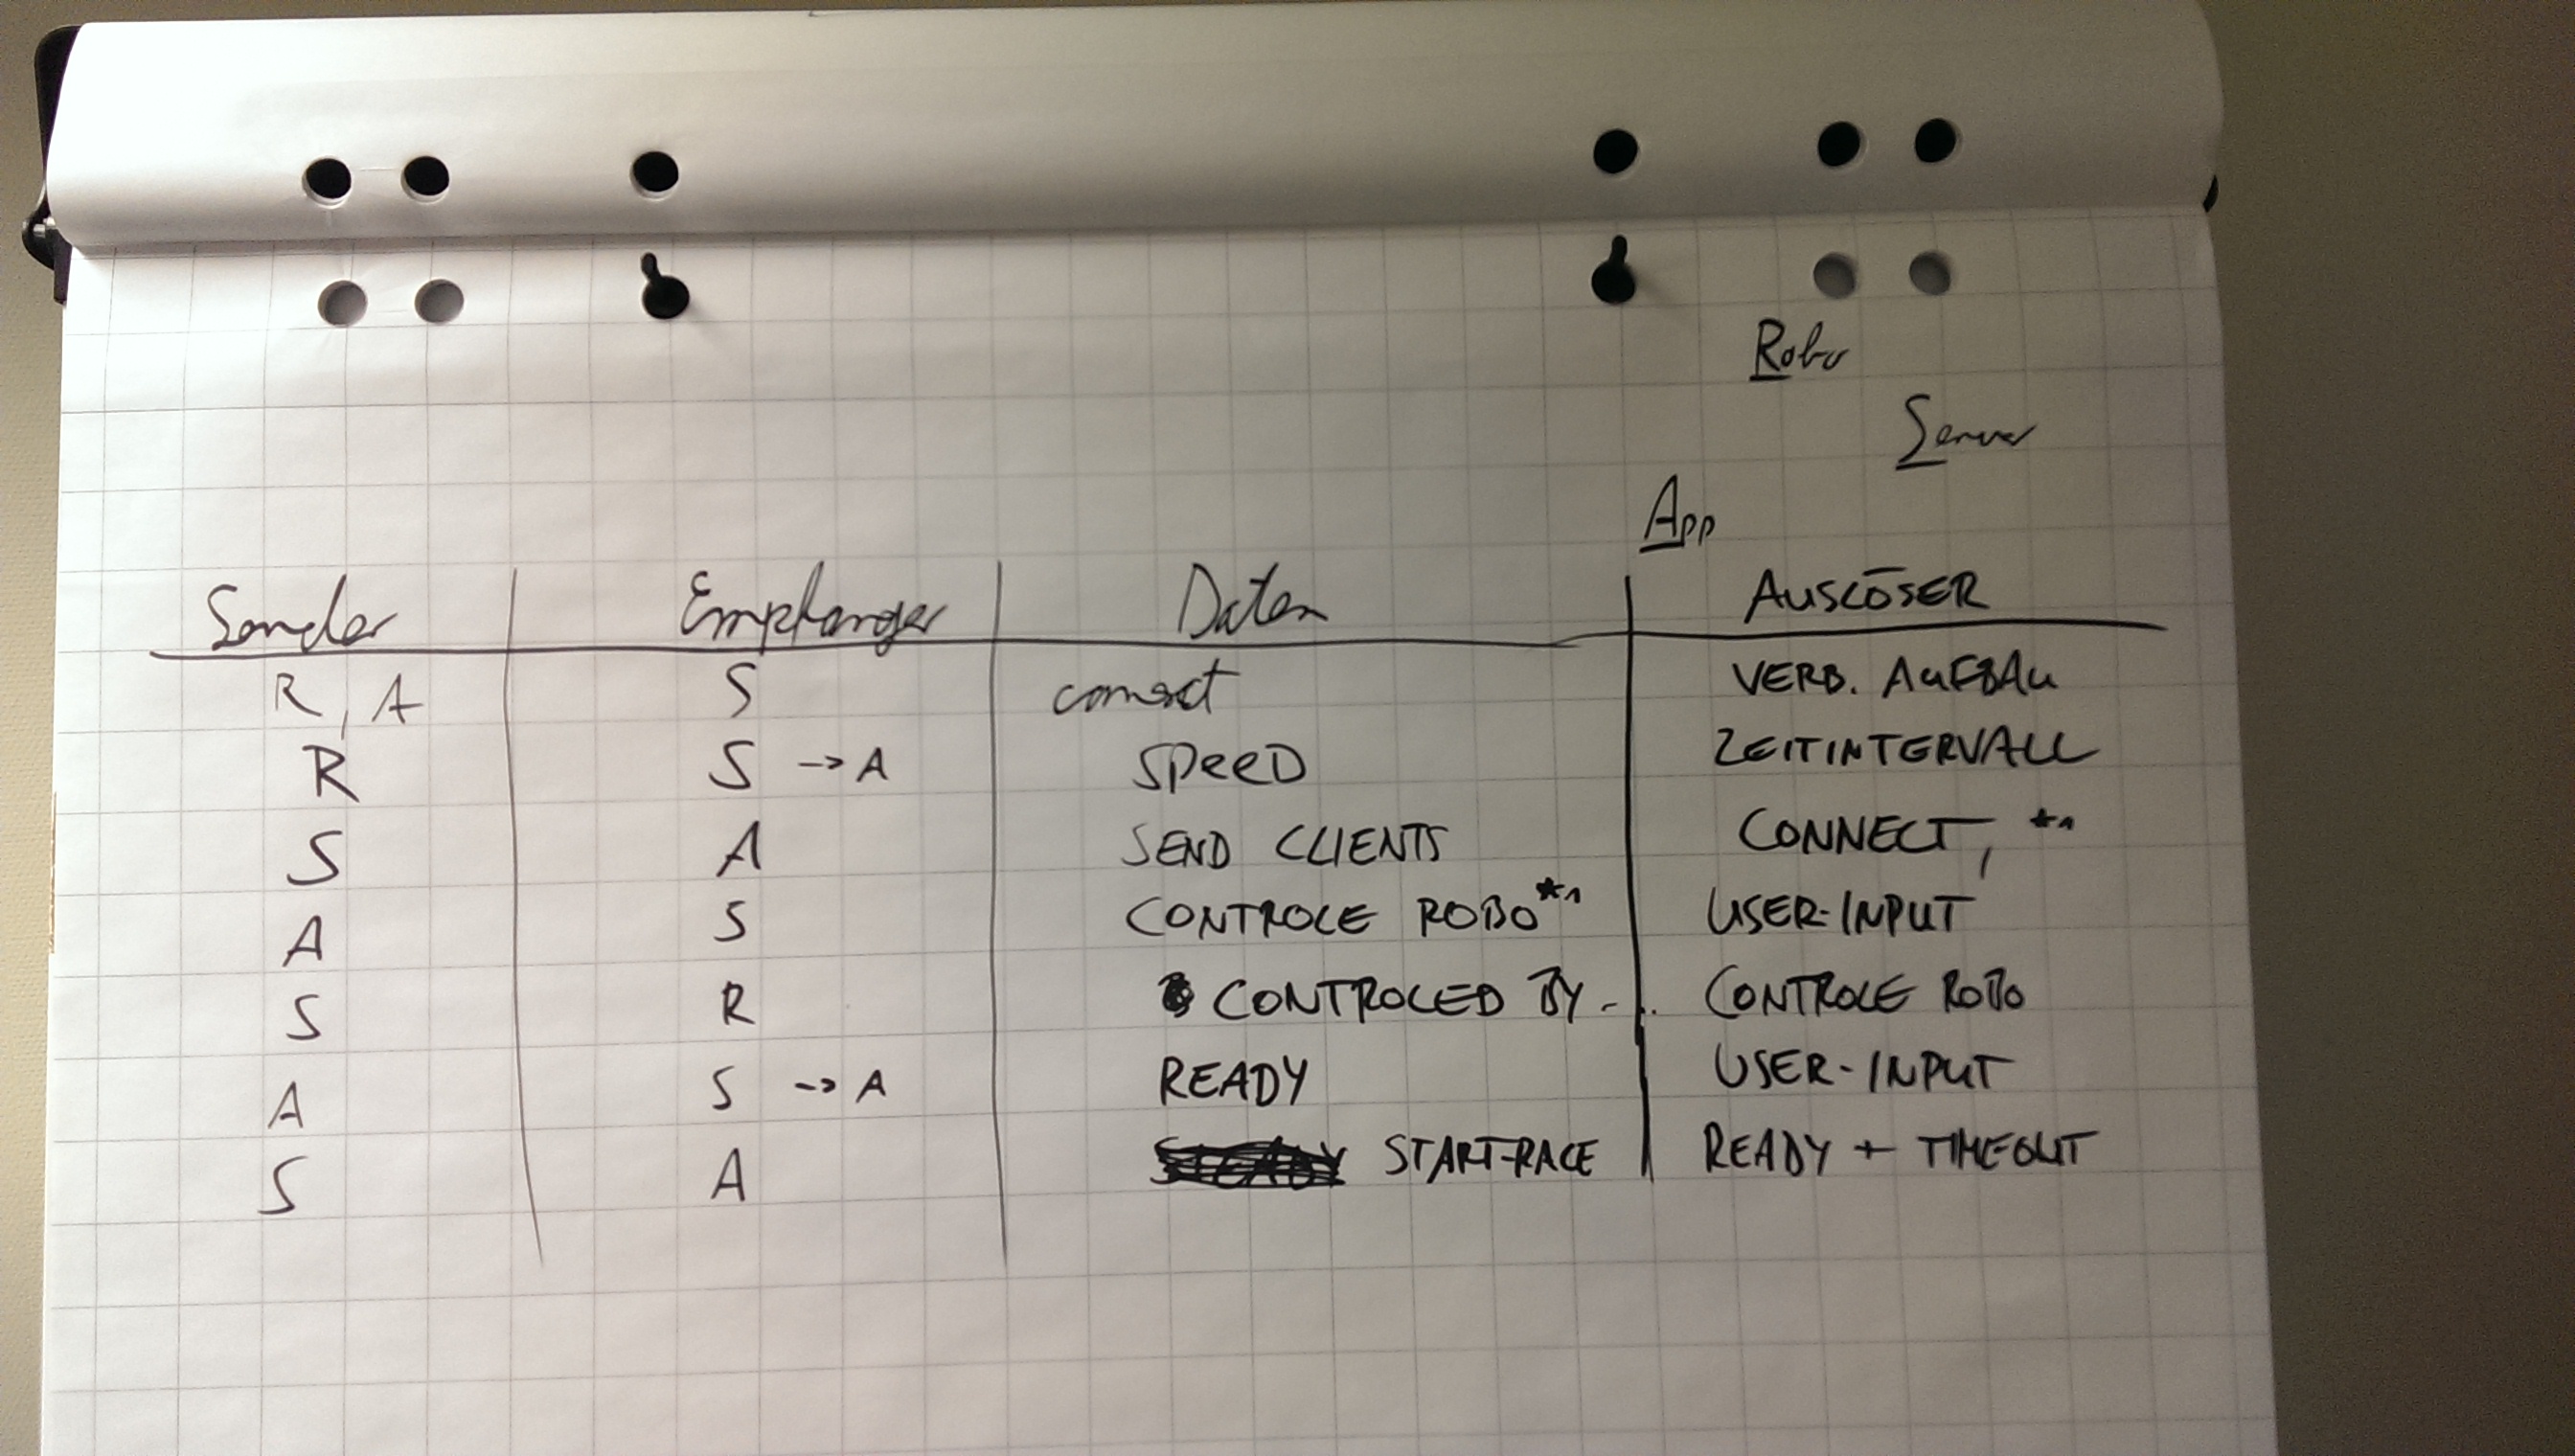 Robo
Server
App
Sender Empfänger Daten AUSLÖSER
R, A S connect VERB. AUFBAU
R S -> A SPEED ZEITINTERVALL
S A SEND CLIENTS CONNECT, *1
A S CONTROLE ROBO*1 USER-INPUT
S R CONTROLED BY ... CONTROLE ROBO
A S -> A READY USER-INPUT
S A START-RACE READY + TIMEOUT